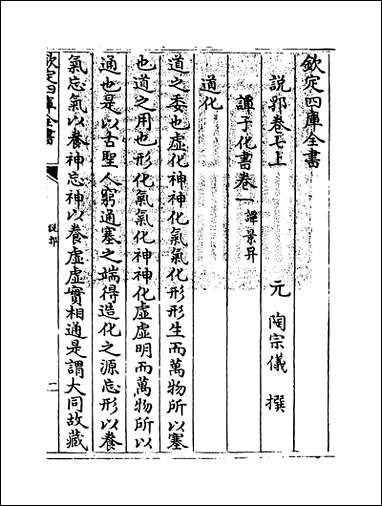 欽定四庫全書
說郛卷七上
元 陶宗儀 撰
譚子化書卷一 譚景昇
道化
道之委也虛化神神化氣氣化形形生而萬物所以塞
也道之用也形化氣氣化神神化虛虛明而萬物所以
通也是以古聖人窮通塞之端得造化之源忘形以養
氣忘氣以養神忘神以養虛虛實相通是謂大同故藏
欽定四庫全書
說郛
二